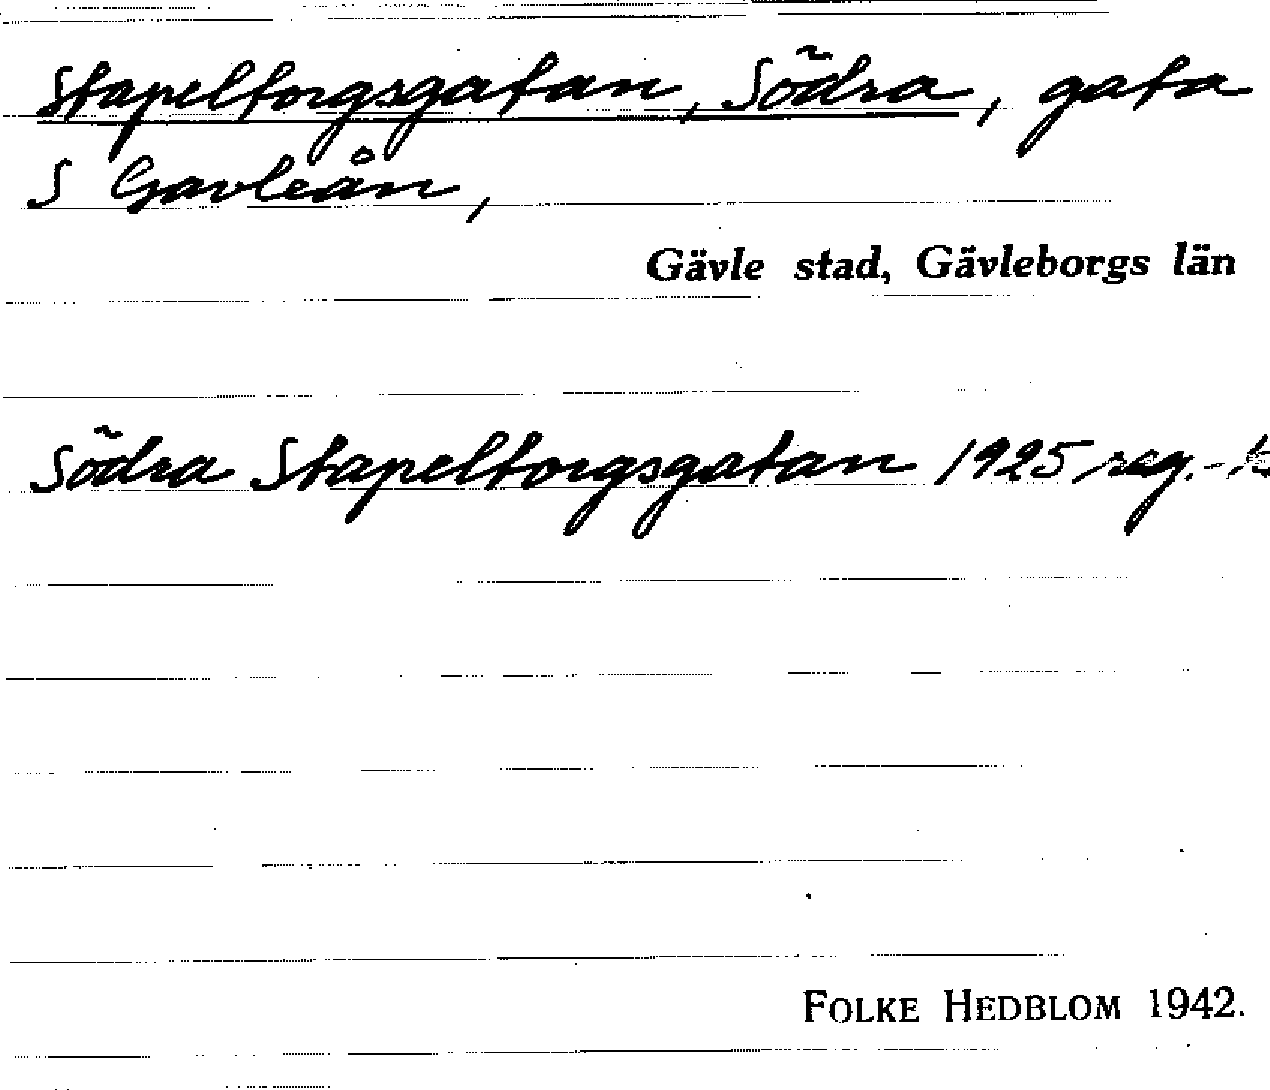 Stapeltorgsgatan, Södra, gata
S Gavleån,
Gävle stad, Gävleborgs län
Södra Stapeltorgsgatan 1925 reg.-
FOLKE HEDBLOM 1942.